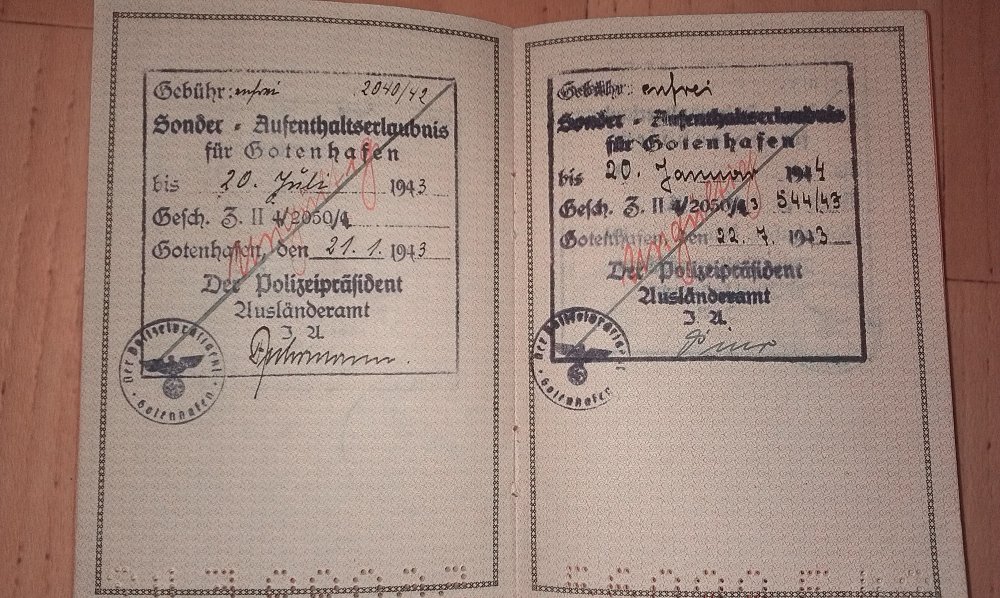 Gebühr: enfrei 2040/42
Sonder - Aufenthaltserlaubnis
für Gotenhafen
bis 20. Juli 1943
Gesch. Z. II 4/2050/
Gotenhafen, den 21. 1. 1943
Der Polizeipräsident
Ausländeramt
I. A.
Der Polizeipräsident
Gotenhafen
Gebühr: enfrei
Sonder - Aufenthaltserlaubnis
für Gotenhafen
bis 20. Januar 1944
Gesch. Z. II 4/2050/43 544/43
Gotenhafen, den 22. 7. 1943
Der Polizeipräsident
Ausländeramt
I. A.
Der Polizeipräsident
Gotenhafen